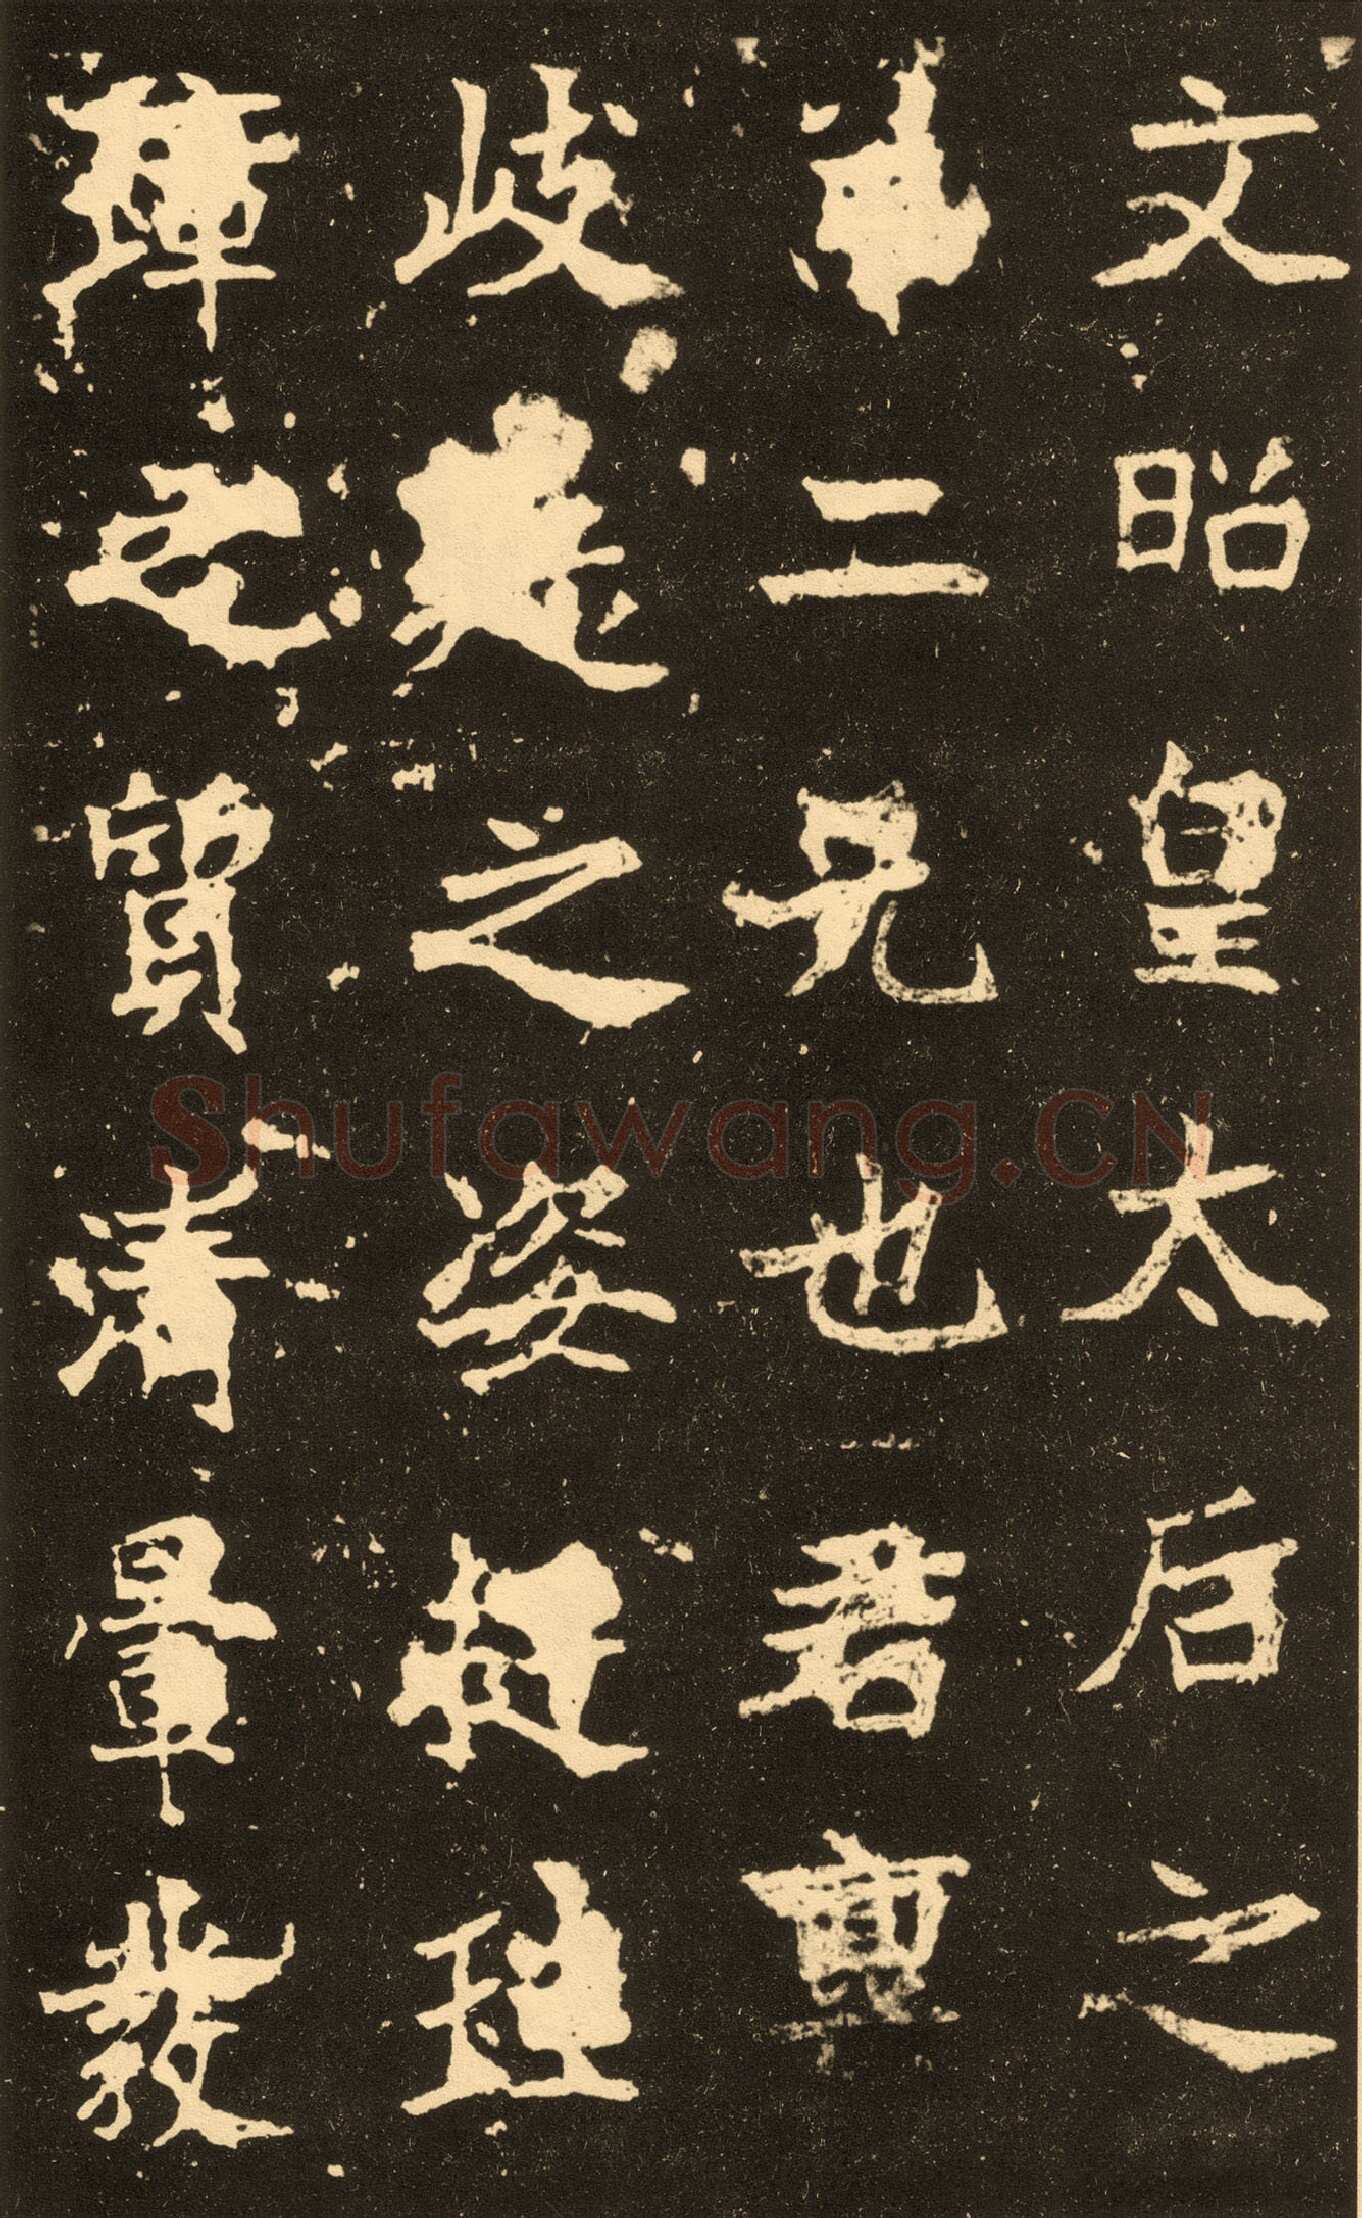 文昭皇太后之
二兄也君稟
岐嶷之姿挺珪
璋之質清暈發
Shufawang.CN